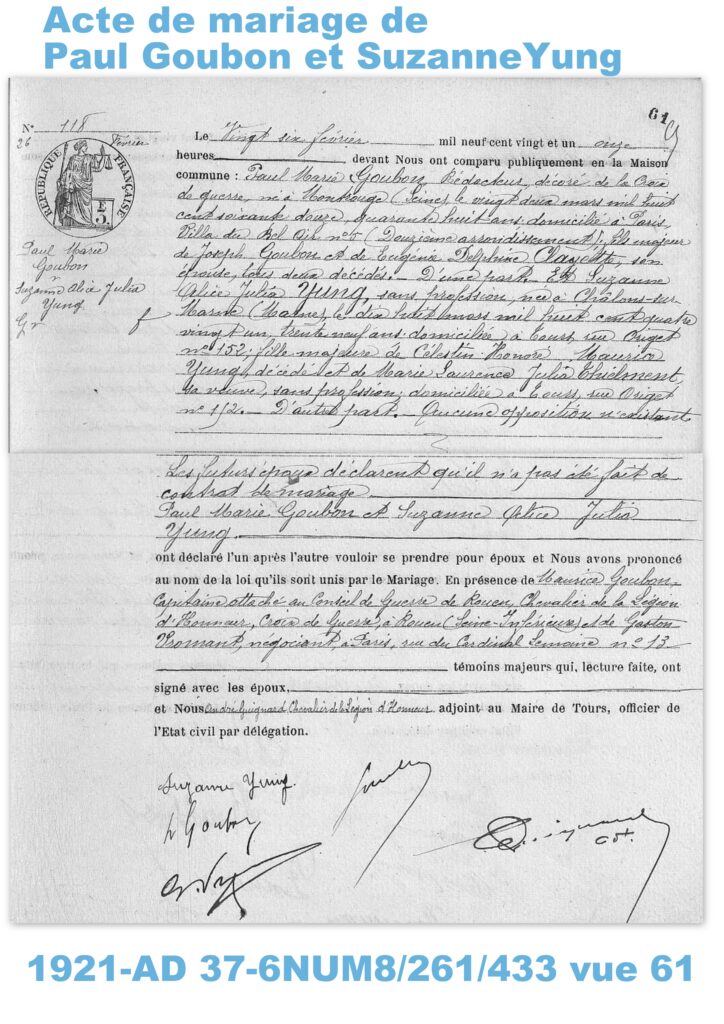 Acte de mariage de
Paul Goubon et SuzanneYung
61
N° 118
26 Février
RÉPUBLIQUE FRANÇAISE
Paul Marie
Goubon
&
Suzanne Alice Julia
Yung
Le Vingt six février mil neuf cent vingt et un onze
heures, devant Nous ont comparu publiquement en la Maison
commune : Paul Marie Goubon, Rédacteur, décoré de la Croix
de guerre, né à Montrouge (Seine), le vingt deux mars mil huit
cent soixante douze, quarante huit ans, domicilié à Paris,
Villa du Bel Air n° 5 (Douzième arrondissement); fils majeur
de Joseph Goubon et de Eugénie Delphine Clayette, son
épouse, tous deux décédés. — D'une part. — Et Suzanne
Alice Julia Yung, sans profession, née à Châlons-sur-
Marne (Marne), le dix huit mars mil huit cent quatre
vingt un, trente neuf ans, domiciliée à Tours, rue Origet
n° 152; fille majeure de Célestin Honoré Maurice
Yung, décédé et de Marie Laurence Julia
sa veuve, sans profession, domiciliée à Tours, rue Origet
n° 152. — D'autre part. — Aucune opposition n'existant
Les futurs époux déclarent qu'il n'a pas été fait de
contrat de mariage
Paul Marie Goubon et Suzanne Alice Julia
Yung
ont déclaré l'un après l'autre vouloir se prendre pour époux et Nous avons prononcé
au nom de la loi qu'ils sont unis par le Mariage. En présence de Maurice Goubon,
Capitaine attaché au Conseil de Guerre de Rouen, Chevalier de la Légion
d'Honneur, Croix de Guerre, à Rouen (Seine-Inférieure) et de Gaston
Promant, négociant, à Paris, rue du Cardinal Lemoine n° 13
témoins majeurs qui, lecture faite, ont
signé avec les époux,
et Nous André Guignard Chevalier de la Légion d'Honneur adjoint au Maire de Tours, officier de
l'Etat civil par délégation.
Suzanne Yung
P Goubon
Goubon
Guignard
1921-AD 37-6NUM8/261/433 vue 61